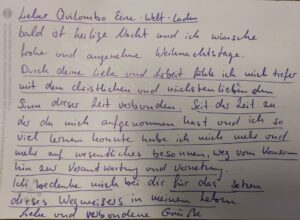 Lieber Quilombo Eine-Welt-Laden
bald ist heilige Nacht und ich wünsche
frohe und angenehme Weihnachtstage.
Durch deine Liebe und Arbeit fühle ich mich tiefer
mit dem christlichen und nächstenliebenden
Sinn dieser Zeit verbunden. Seit der Zeit zu
der du mich aufgenommen hast und ich so
viel lernen konnte habe ich mich mehr und
mehr auf wesentliches besonnen, weg vom Konsum
hin zur Verantwortung und
Ich bedanke mich bei dir für das setzen
dieses Wegweisers in meinem Leben
Liebe und verbondene Grüße